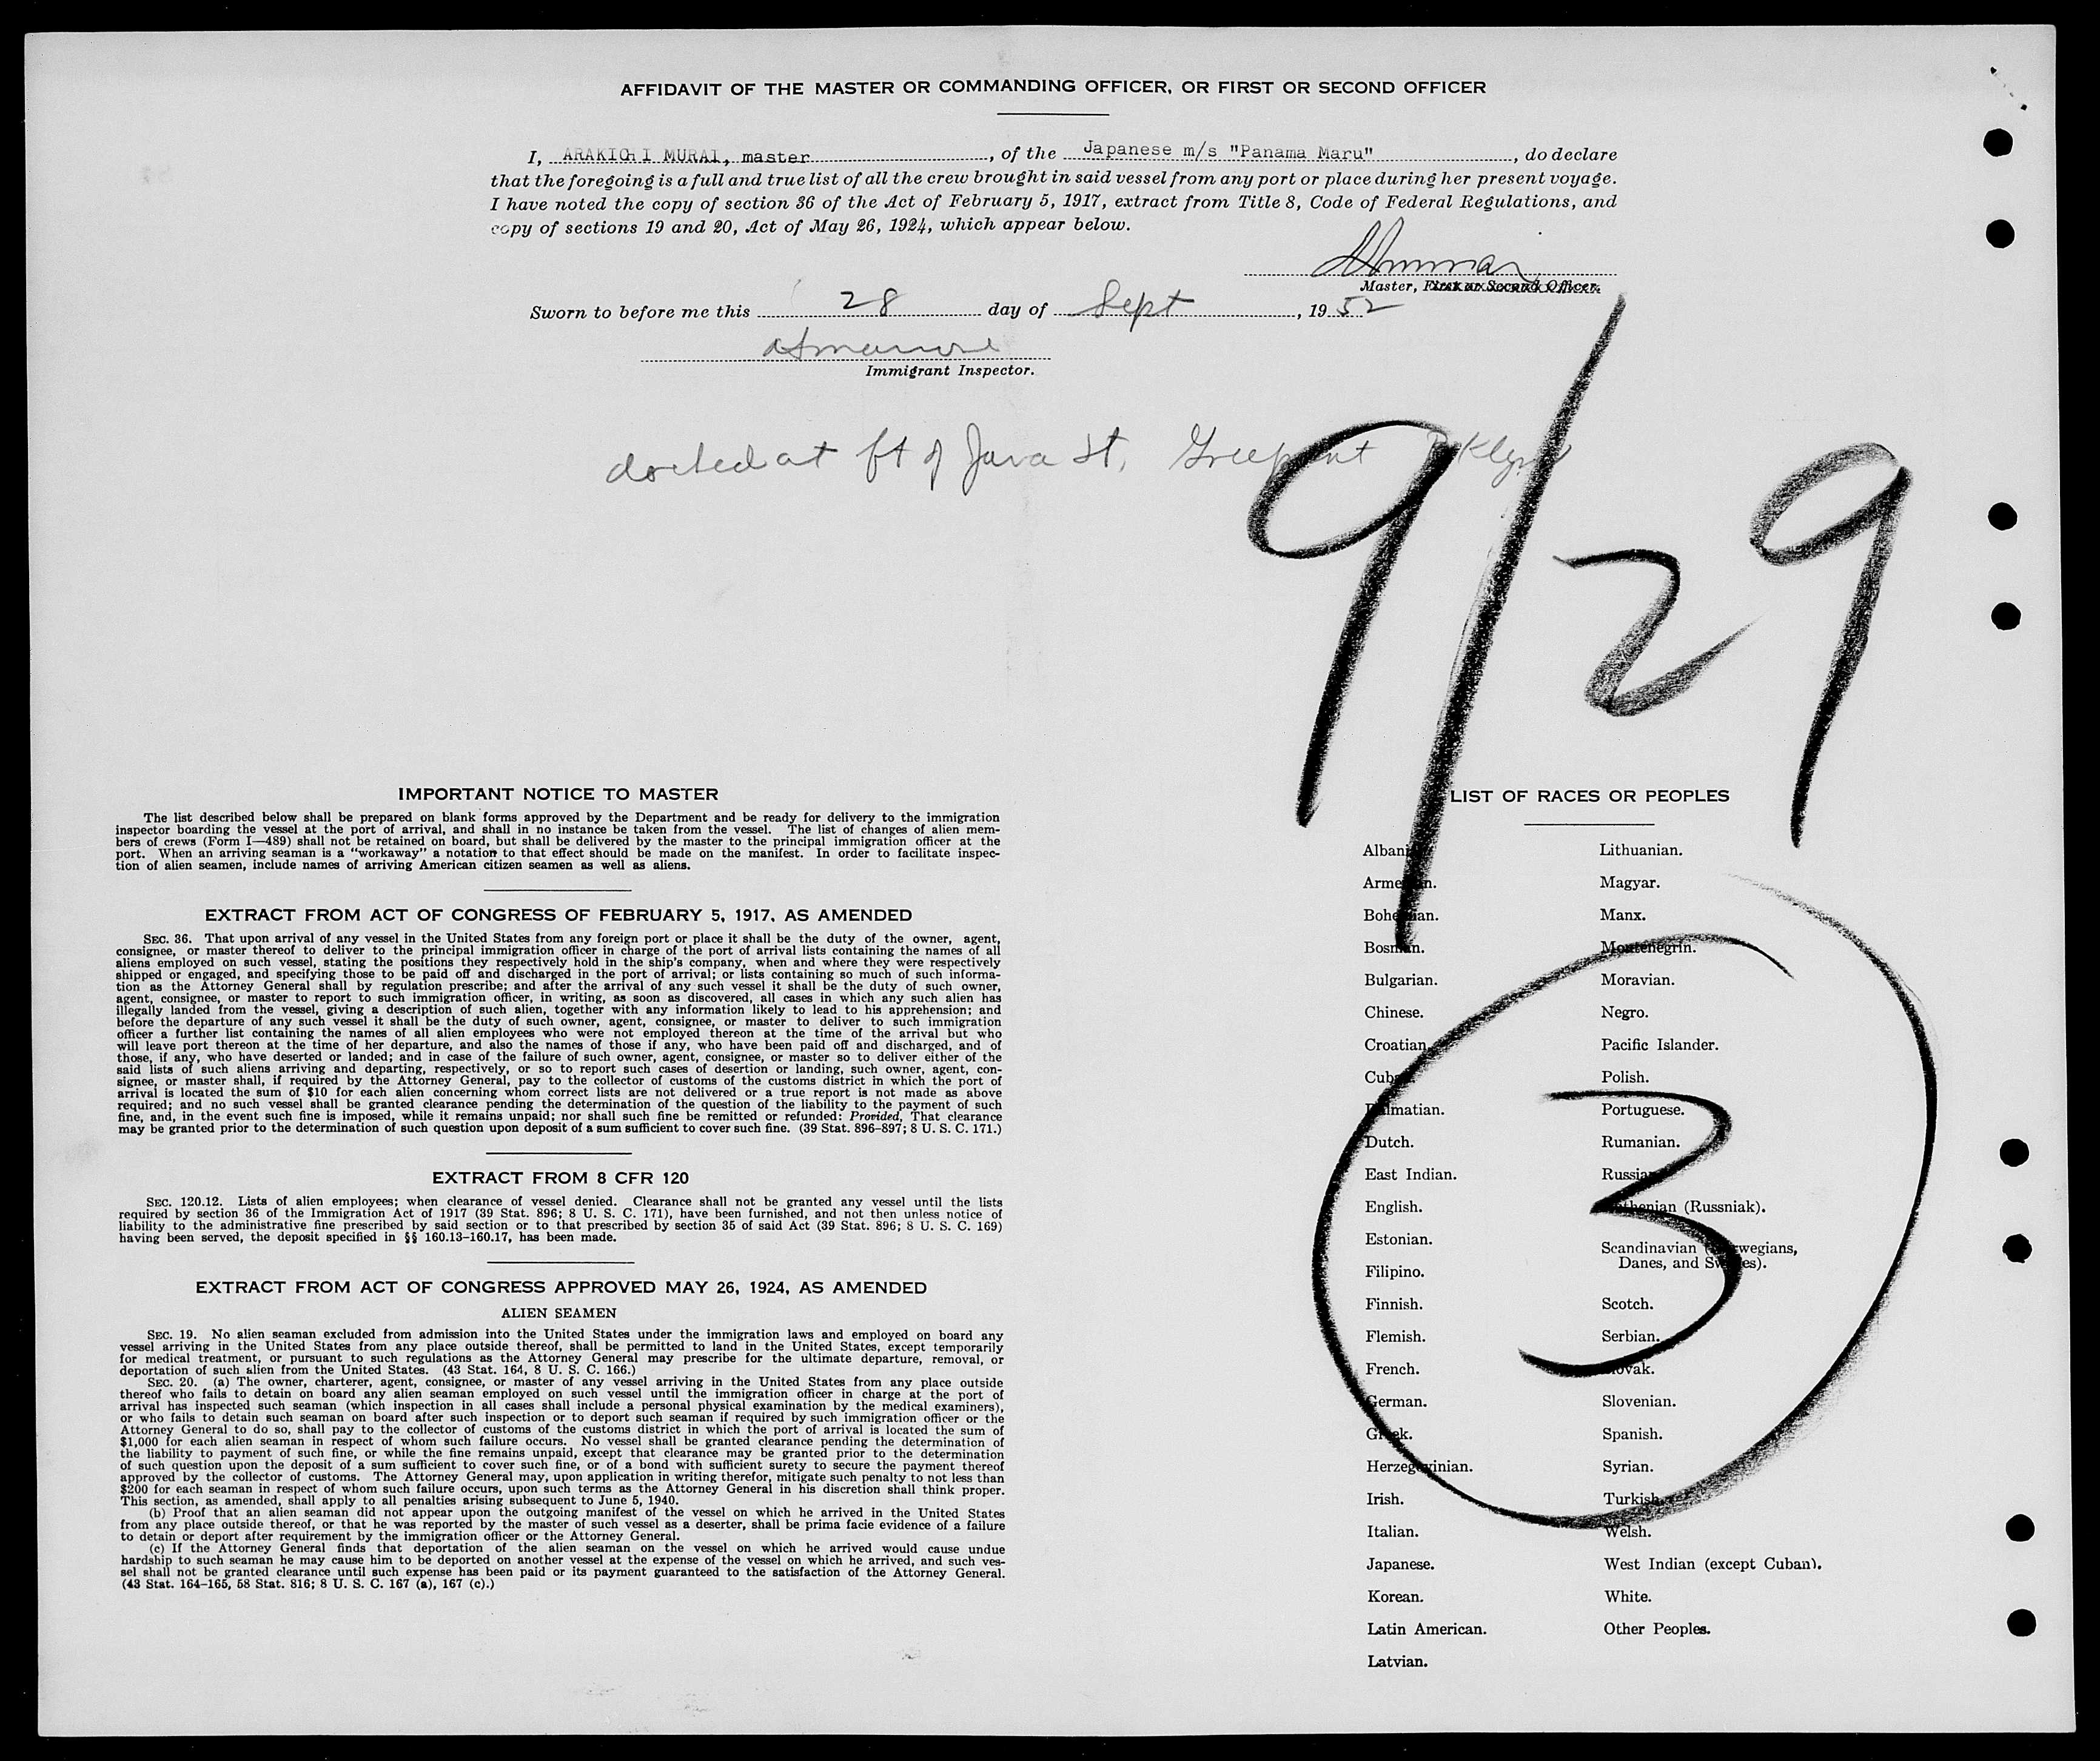 AFFIDAVIT OF THE MASTER OR COMMANDING OFFICER, OR FIRST OR SECOND OFFICER
I, ARAKICHI MURAI, master, of the Japanese m/s "Panama Maru", do declare
that the foregoing is a full and true list of all the crew brought in said vessel from any port or place during her present voyage.
I have noted the copy of section 36 of the Act of February 5, 1917, extract from Title 8, Code of Federal Regulations, and
copy of sections 19 and 20, Act of May 26, 1924, which appear below.
Master, First or Second Officer.
Sworn to before me this 28 day of Sept, 1952
Immigrant Inspector.
docked at ft of Java St,
9/29
IMPORTANT NOTICE TO MASTER
The list described below shall be prepared on blank forms approved by the Department and be ready for delivery to the immigration
inspector boarding the vessel at the port of arrival, and shall in no instance be taken from the vessel. The list of changes of alien mem-
bers of crews (Form I—489) shall not be retained on board, but shall be delivered by the master to the principal immigration officer at the
port. When an arriving seaman is a "workaway" a notation to that effect should be made on the manifest. In order to facilitate inspec-
tion of alien seamen, include names of arriving American citizen seamen as well as aliens.
EXTRACT FROM ACT OF CONGRESS OF FEBRUARY 5, 1917, AS AMENDED
SEC. 36. That upon arrival of any vessel in the United States from any foreign port or place it shall be the duty of the owner, agent,
consignee, or master thereof to deliver to the principal immigration officer in charge of the port of arrival lists containing the names of all
aliens employed on such vessel, stating the positions they respectively hold in the ship's company, when and where they were respectively
shipped or engaged, and specifying those to be paid off and discharged in the port of arrival; or lists containing so much of such informa-
tion as the Attorney General shall by regulation prescribe; and after the arrival of any such vessel it shall be the duty of such owner,
agent, consignee, or master to report to such immigration officer, in writing, as soon as discovered, all cases in which any such alien has
illegally landed from the vessel, giving a description of such alien, together with any information likely to lead to his apprehension; and
before the departure of any such vessel it shall be the duty of such owner, agent, consignee, or master to deliver to such immigration
officer a further list containing the names of all alien employees who were not employed thereon at the time of the arrival but who
will leave port thereon at the time of her departure, and also the names of those if any, who have been paid off and discharged, and of
those, if any, who have deserted or landed; and in case of the failure of such owner, agent, consignee, or master so to deliver either of the
said lists of such aliens arriving and departing, respectively, or so to report such cases of desertion or landing, such owner, agent, con-
signee, or master shall, if required by the Attorney General, pay to the collector of customs of the customs district in which the port of
arrival is located the sum of $10 for each alien concerning whom correct lists are not delivered or a true report is not made as above
required; and no such vessel shall be granted clearance pending the determination of the question of the liability to the payment of such
fine, and, in the event such fine is imposed, while it remains unpaid; nor shall such fine be remitted or refunded: Provided, That clearance
may be granted prior to the determination of such question upon deposit of a sum sufficient to cover such fine. (39 Stat. 896–897; 8 U. S. C. 171.)
EXTRACT FROM 8 CFR 120
SEC. 120.12. Lists of alien employees; when clearance of vessel denied. Clearance shall not be granted any vessel until the lists
required by section 36 of the Immigration Act of 1917 (39 Stat. 896; 8 U. S. C. 171), have been furnished, and not then unless notice of
liability to the administrative fine prescribed by said section or to that prescribed by section 35 of said Act (39 Stat. 896; 8 U. S. C. 169)
having been served, the deposit specified in §§ 160.13–160.17, has been made.
EXTRACT FROM ACT OF CONGRESS APPROVED MAY 26, 1924, AS AMENDED
ALIEN SEAMEN
SEC. 19. No alien seaman excluded from admission into the United States under the immigration laws and employed on board any
vessel arriving in the United States from any place outside thereof, shall be permitted to land in the United States, except temporarily
for medical treatment, or pursuant to such regulations as the Attorney General may prescribe for the ultimate departure, removal, or
deportation of such alien from the United States. (43 Stat. 164, 8 U. S. C. 166.)
SEC. 20. (a) The owner, charterer, agent, consignee, or master of any vessel arriving in the United States from any place outside
thereof who fails to detain on board any alien seaman employed on such vessel until the immigration officer in charge at the port of
arrival has inspected such seaman (which inspection in all cases shall include a personal physical examination by the medical examiners),
or who fails to detain such seaman on board after such inspection or to deport such seaman if required by such immigration officer or the
Attorney General to do so, shall pay to the collector of customs of the customs district in which the port of arrival is located the sum of
$1,000 for each alien seaman in respect of whom such failure occurs. No vessel shall be granted clearance pending the determination of
the liability to payment of such fine, or while the fine remains unpaid, except that clearance may be granted prior to the determination
of such question upon the deposit of a sum sufficient to cover such fine, or of a bond with sufficient surety to secure the payment thereof
approved by the collector of customs. The Attorney General may, upon application in writing therefor, mitigate such penalty to not less than
$200 for each seaman in respect of whom such failure occurs, upon such terms as the Attorney General in his discretion shall think proper.
This section, as amended, shall apply to all penalties arising subsequent to June 5, 1940.
(b) Proof that an alien seaman did not appear upon the outgoing manifest of the vessel on which he arrived in the United States
from any place outside thereof, or that he was reported by the master of such vessel as a deserter, shall be prima facie evidence of a failure
to detain or deport after requirement by the immigration officer or the Attorney General.
(c) If the Attorney General finds that deportation of the alien seaman on the vessel on which he arrived would cause undue
hardship to such seaman he may cause him to be deported on another vessel at the expense of the vessel on which he arrived, and such ves-
sel shall not be granted clearance until such expense has been paid or its payment guaranteed to the satisfaction of the Attorney General.
(43 Stat. 164–165, 58 Stat. 816; 8 U. S. C. 167 (a), 167 (c).)
LIST OF RACES OR PEOPLES
Albanian.
Armenian.
Bohemian.
Bosnian.
Bulgarian.
Chinese.
Croatian.
Cuban.
Dalmatian.
Dutch.
East Indian.
English.
Estonian.
Filipino.
Finnish.
Flemish.
French.
German.
Greek.
Herzegovinian.
Irish.
Italian.
Japanese.
Korean.
Latin American.
Latvian.
Lithuanian.
Magyar.
Manx.
Montenegrin.
Moravian.
Negro.
Pacific Islander.
Polish.
Portuguese.
Rumanian.
Russian.
Ruthenian (Russniak).
Scandinavian (Norwegians,
Danes, and Swedes).
Scotch.
Serbian.
Slovak.
Slovenian.
Spanish.
Syrian.
Turkish.
Welsh.
West Indian (except Cuban).
White.
Other Peoples.
3